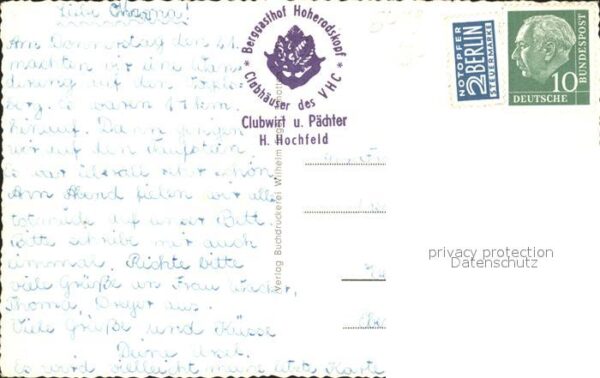 Liebe Oharma!
Am Donnerstag den
machten wir eine Wan-
derung auf den
berg. Es waren 17 km.
hinauf. Dann gingen
wir auf den
es war überall sehr schön.
Am Abend fielen wir alle
totmüde auf unser Bett.
Bitte schreibe mir auch
einmal. Richte bitte
viele Grüße an Frau
Thoma, Dreger aus.
Viele Grüße und Küsse
Deine Uxel.
Es wird vielleicht meine letzte Karte
* Berggasthof Hoherodskopf *
Clubhäuser des VHC
Clubwirt u. Pächter
H. Hochfeld
Verlag Buchdruckerei Wilhelm
NOTOPFER
2 BERLIN
STEUERMARKE
10
DEUTSCHE
BUNDESPOST
privacy protection
Datenschutz